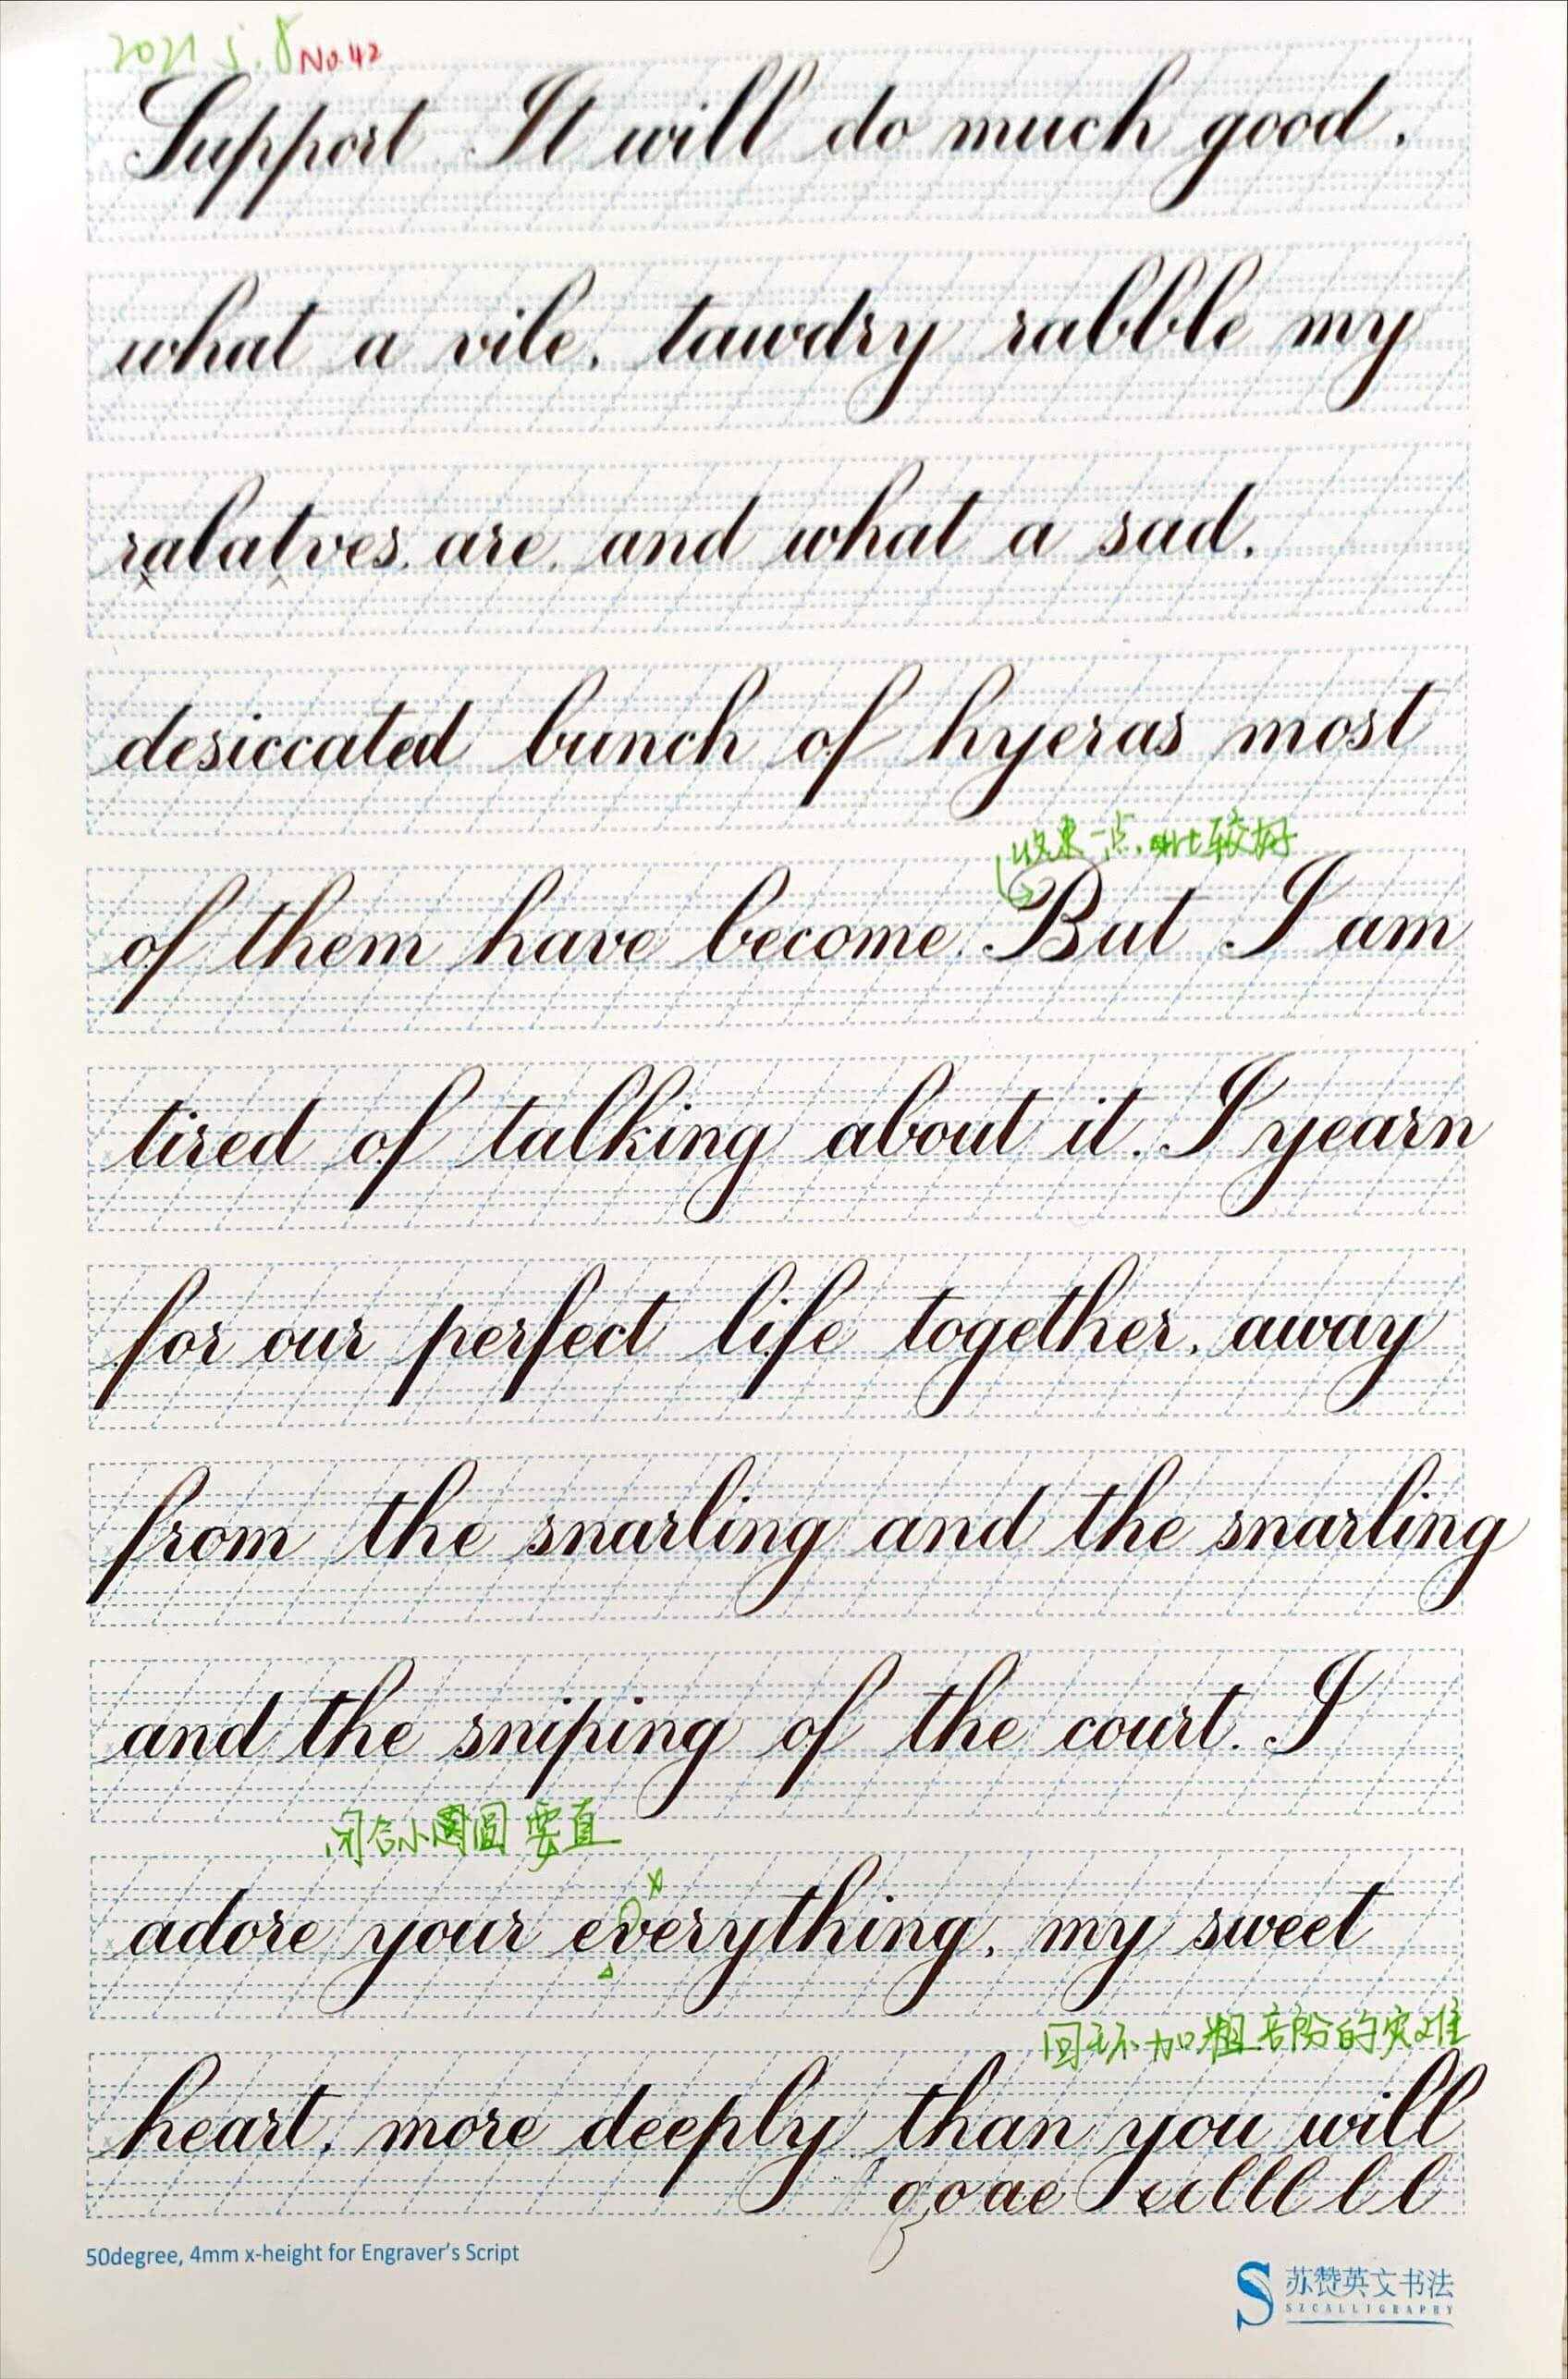 2021 5.8 No.42
Support. It will do much good.
what a vile, tawdry rabble my
ralatves are, and what a sad,
desiccated bunch of hyeras most
收束一点,比较好
of them have become. But I am
tired of talking about it. I yearn
for our perfect life together, away
from the snarling and the snarling
and the sniping of the court. I
闭合小圈圆 要直
adore your everything, my sweet
回环加粗部份的灾难
heart, more deeply than you will
50degree, 4mm x-height for Engraver's Script
苏赞英文书法
SZCALLIGRAPHY